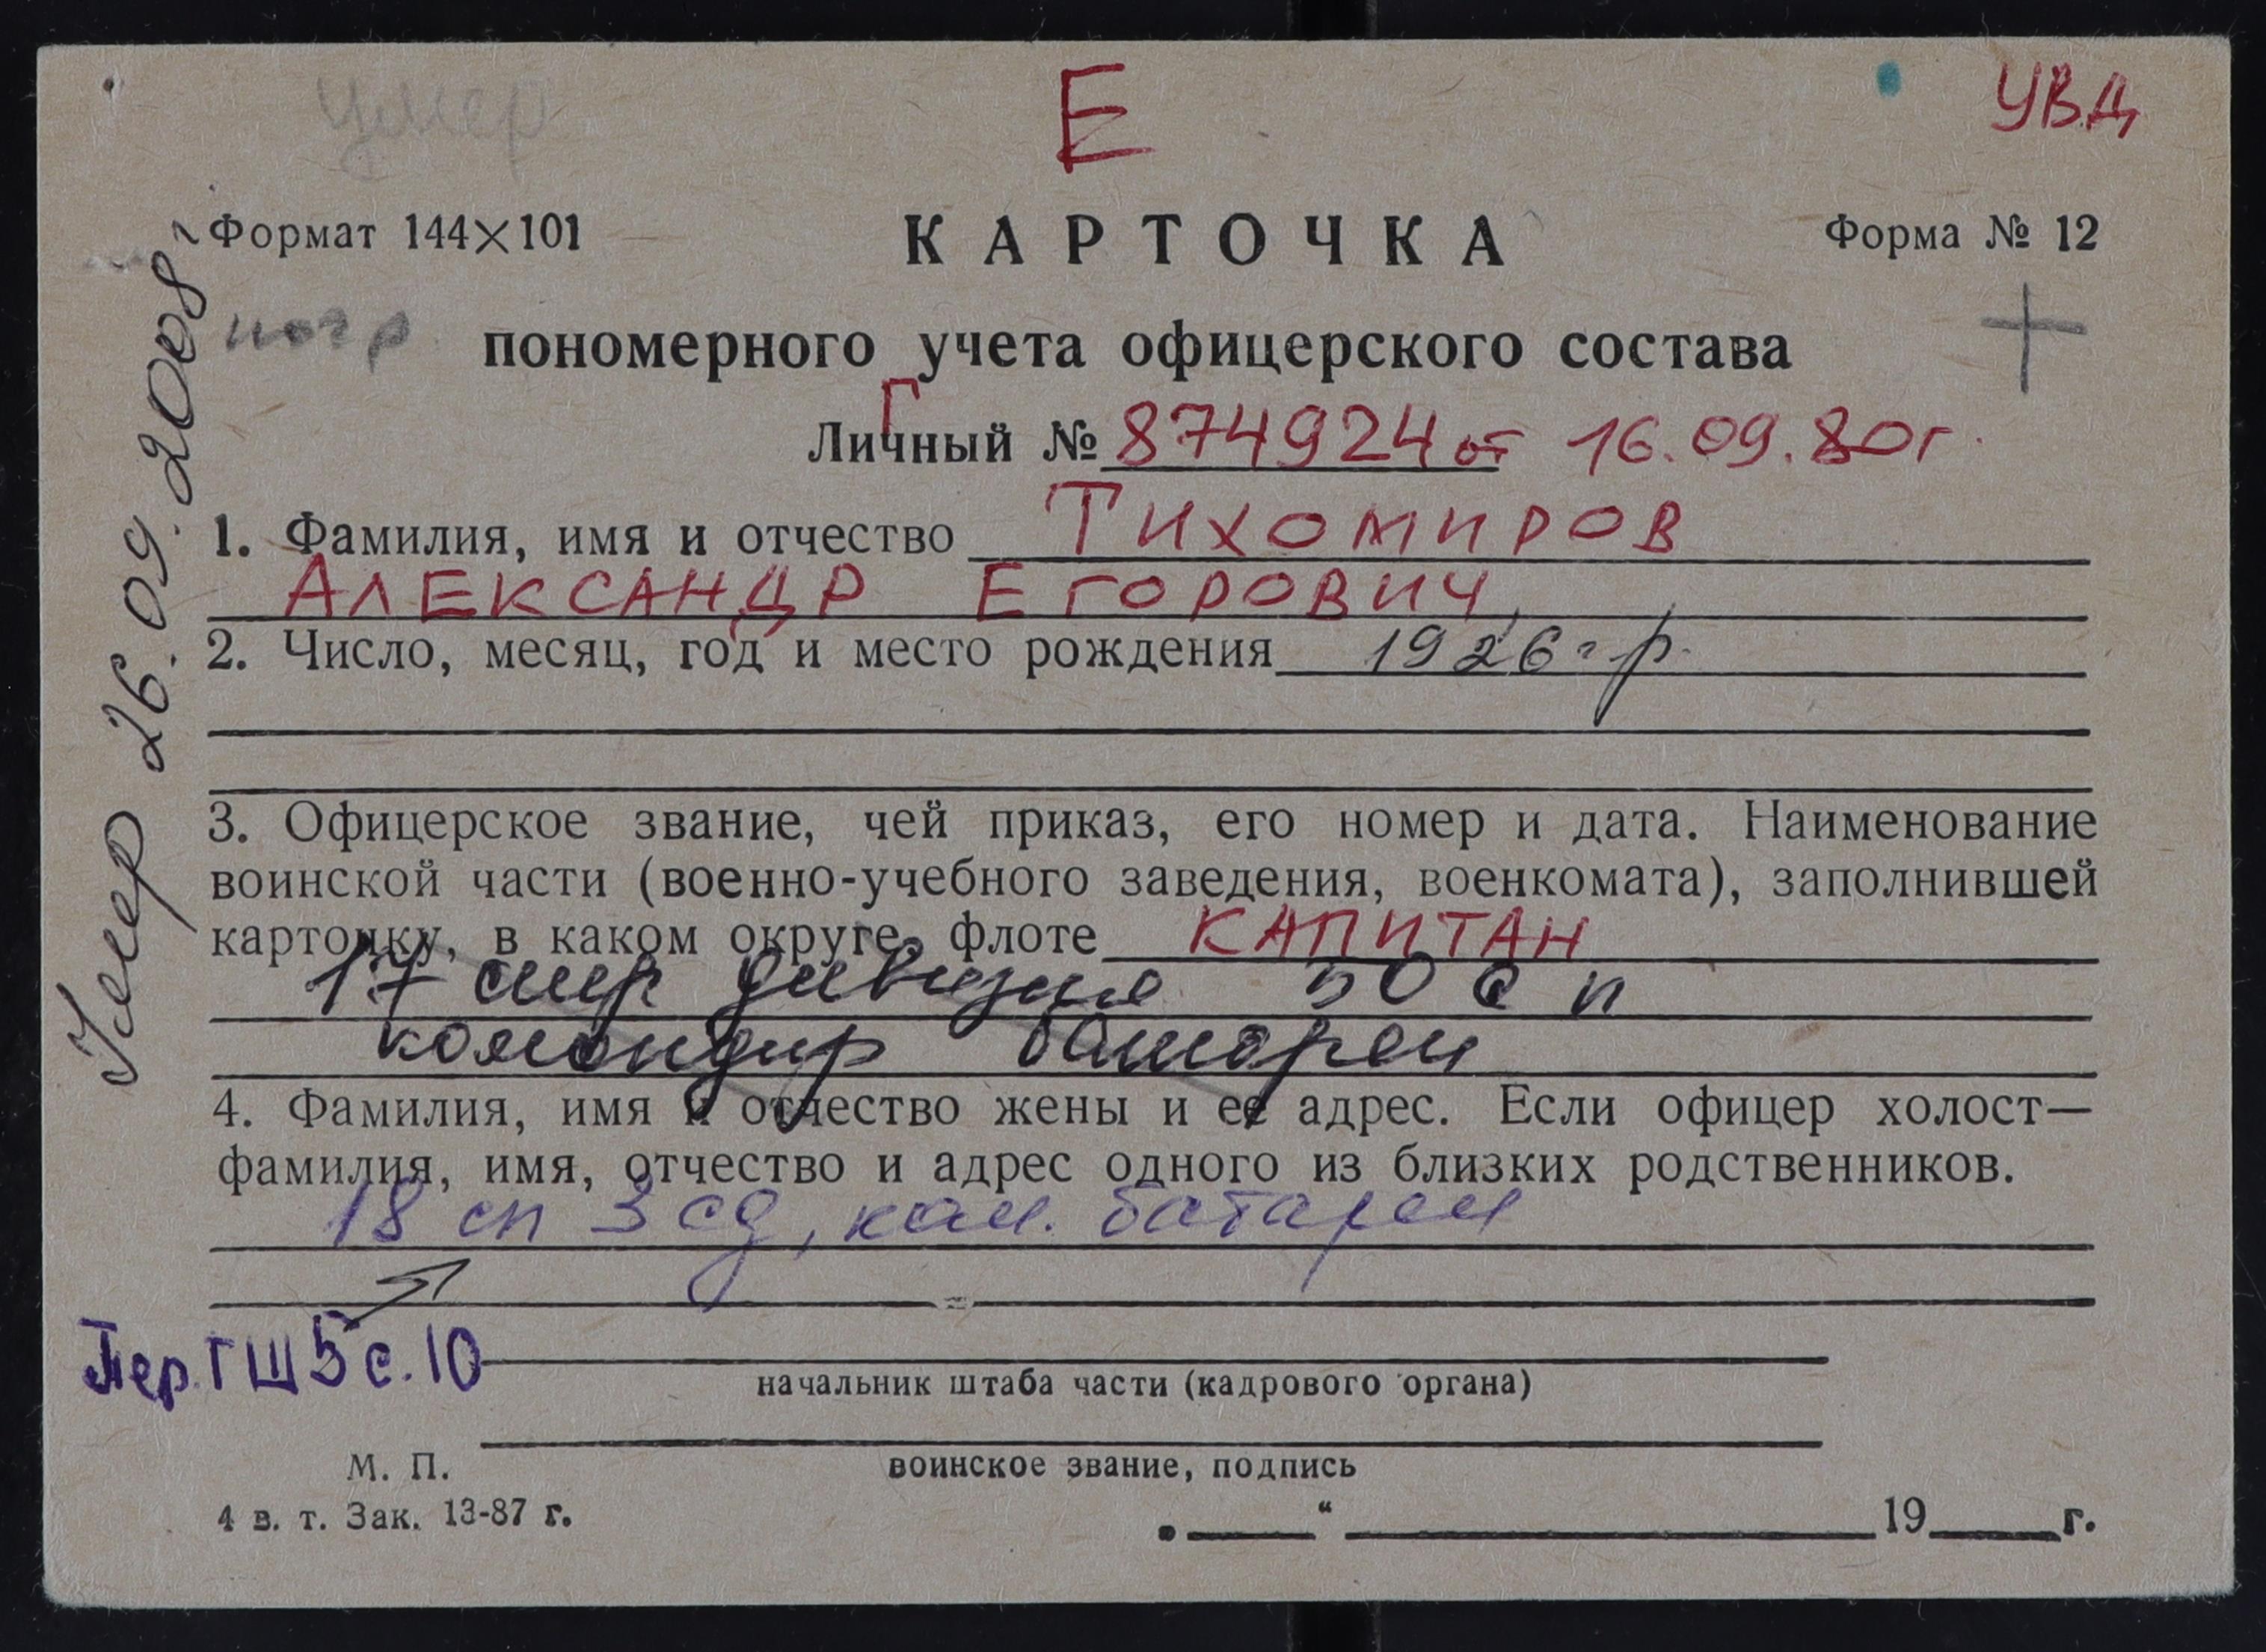 умер
Е
УВД
Формат 144×101
КАРТОЧКА
Форма № 12
погр
пономерного учета офицерского состава
Г
Личный № 874924 от 16.09.80г.
1. Фамилия, имя и отчество ТИХОМИРОВ
АЛЕКСАНДР ЕГОРОВИЧ,
2. Число, месяц, год и место рождения 1926 г р.
3. Офицерское звание, чей приказ, его номер и дата. Наименование
воинской части (военно-учебного заведения, военкомата), заполнившей
карточку, в каком округе, флоте КАПИТАН
17 стр дивизия 50 с п
командир батареи
4. Фамилия, имя и отчество жены и ее адрес. Если офицер холост—
фамилия, имя, отчество и адрес одного из близких родственников.
18 сп 3 сд, ком. батареи
Пер. ГШ 5 с. 10
начальник штаба части (кадрового органа)
М. П.
воинское звание, подпись
4 в. т. Зак. 13-87 г.
„ “ 19 г.
Умер 26.09.2008 г.